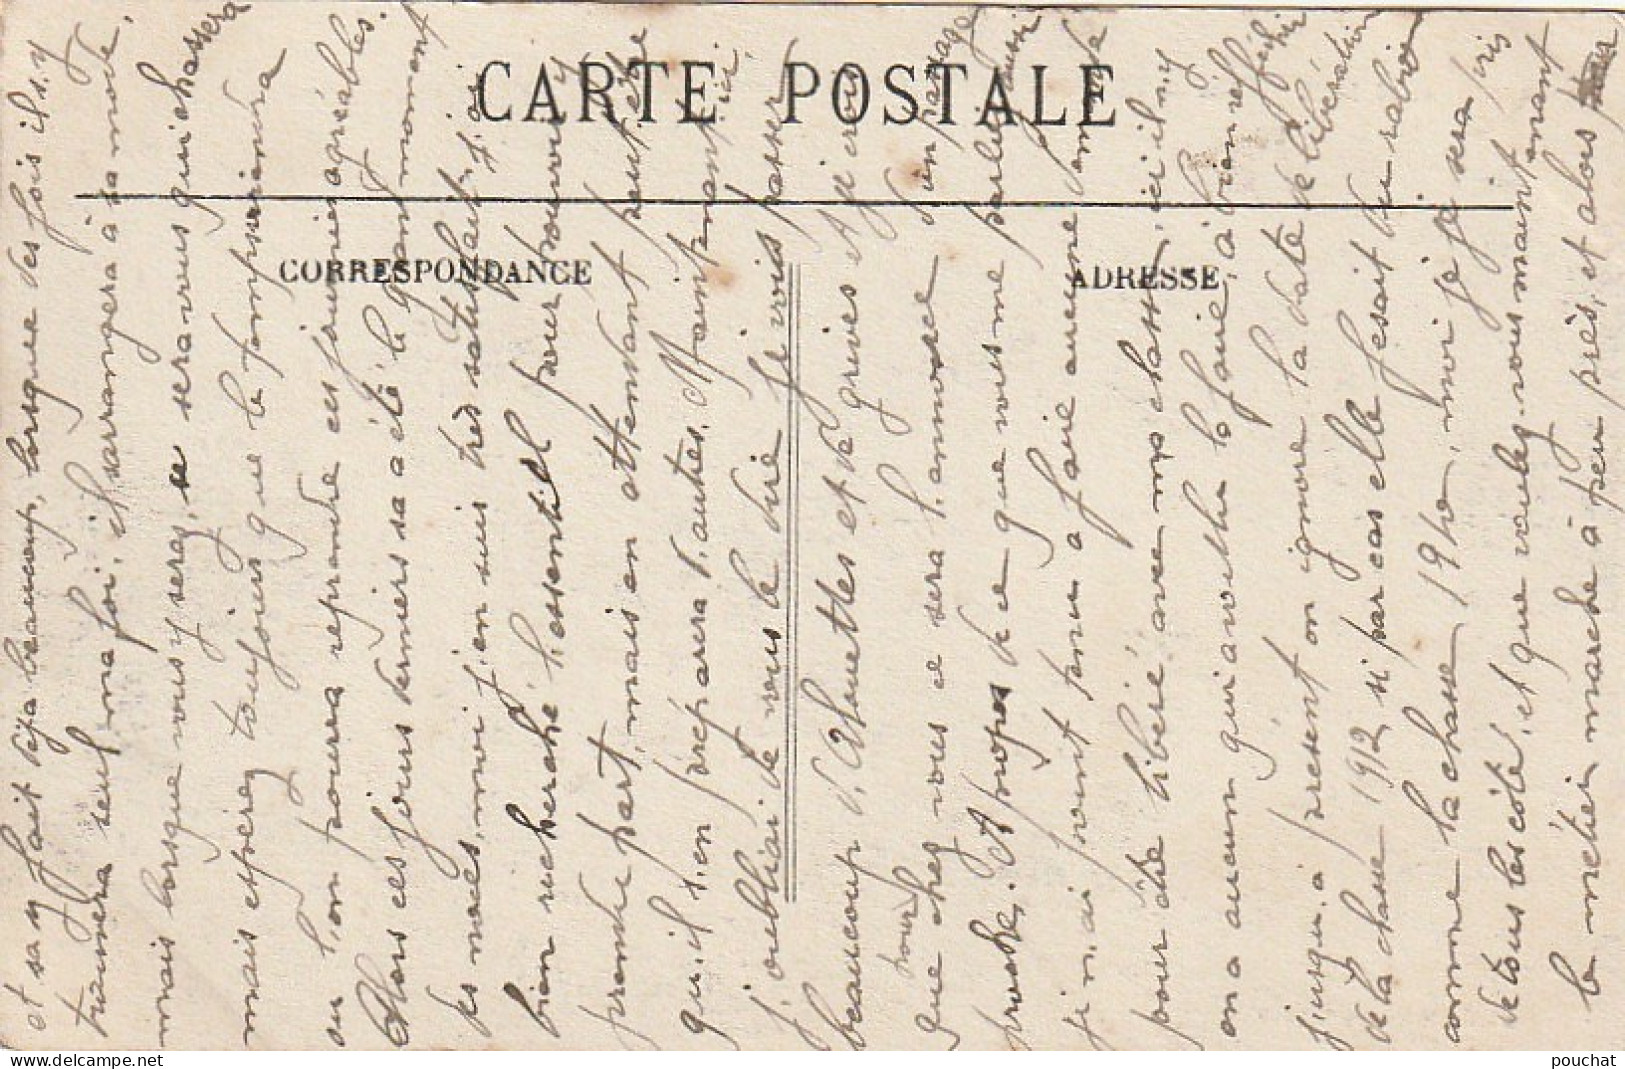 CARTE POSTALE
CORRESPONDANCE
ADRESSE
et sa y fait déja beaucoup, lorsque des fois il s.y
trouvera seul, ma foi, il s'arrangera à sa mode,
mais lorsque vous y serez, se sera vous qui chassera
mais espérez toujours que le temps viendra
ou l'on pourra reprendre ces journées agréables.
Alors ces jours derniers sa a été le grand moment
des noces, moi j'en suis très satisfait, j'ai
bien recherché l'essentiel pour pouvoir y
prendre part, mais en attendant peut être
qu.il s.en préparera d'autres. Maintenant ici,
j'oubliai de vous le dire je vois passer
beaucoup d'Alouettes et de grives et je crois
que chez vous ce sera l'annonce d'un passage
pour
proche. A propos de ce que vous me parlez aussi
je n.ai point tenu a faire aucune demande
pour être libéré avec ma classe, ici il n.y
en a aucun qui a voulu le faire, à bien réfléchir
jusqu.à présent on ignore la date de libération
de la classe 1912, si par cas elle fesait du rabiot
comme la classe 1910, moi je je sera pris
de tous les côté, et que voulez-vous maintenant
le métier marche à peu près, et alors
delcampe.net
pouchat